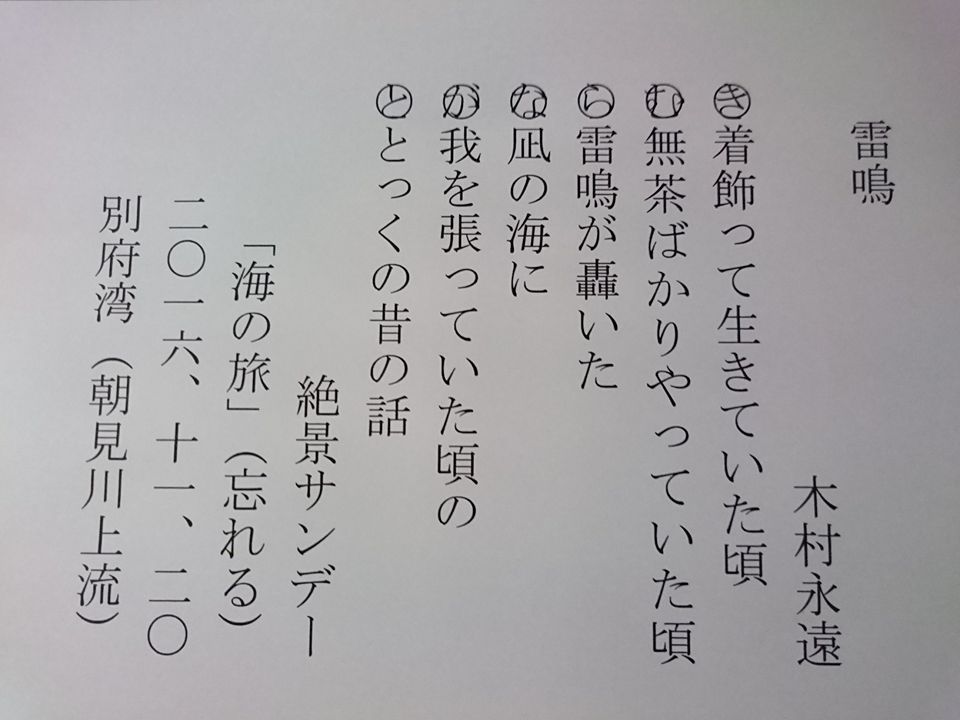 雷鳴
木村永遠
き着飾って生きていた頃
む無茶ばかりやっていた頃
ら雷鳴が轟いた
な凪の海に
が我を張っていた頃の
ととっくの昔の話
絶景サンデー
「海の旅」（忘れる）
二〇一六、十一、二〇
別府湾（朝見川上流）